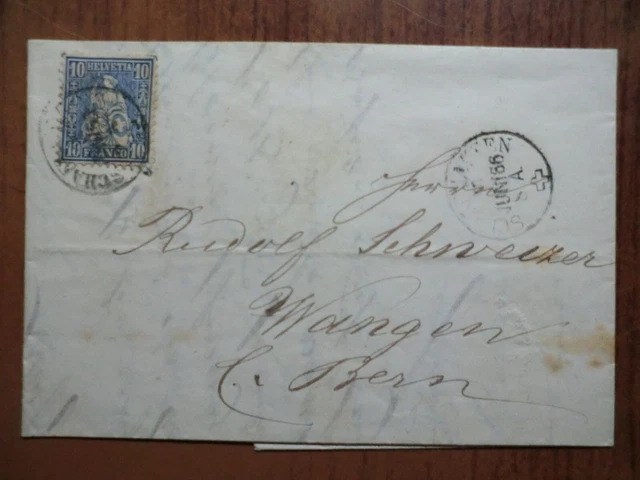 10 HELVETIA 10
10 FRANCO 10
Herrn
Rudolf Schweizer
Wangen
C. Bern